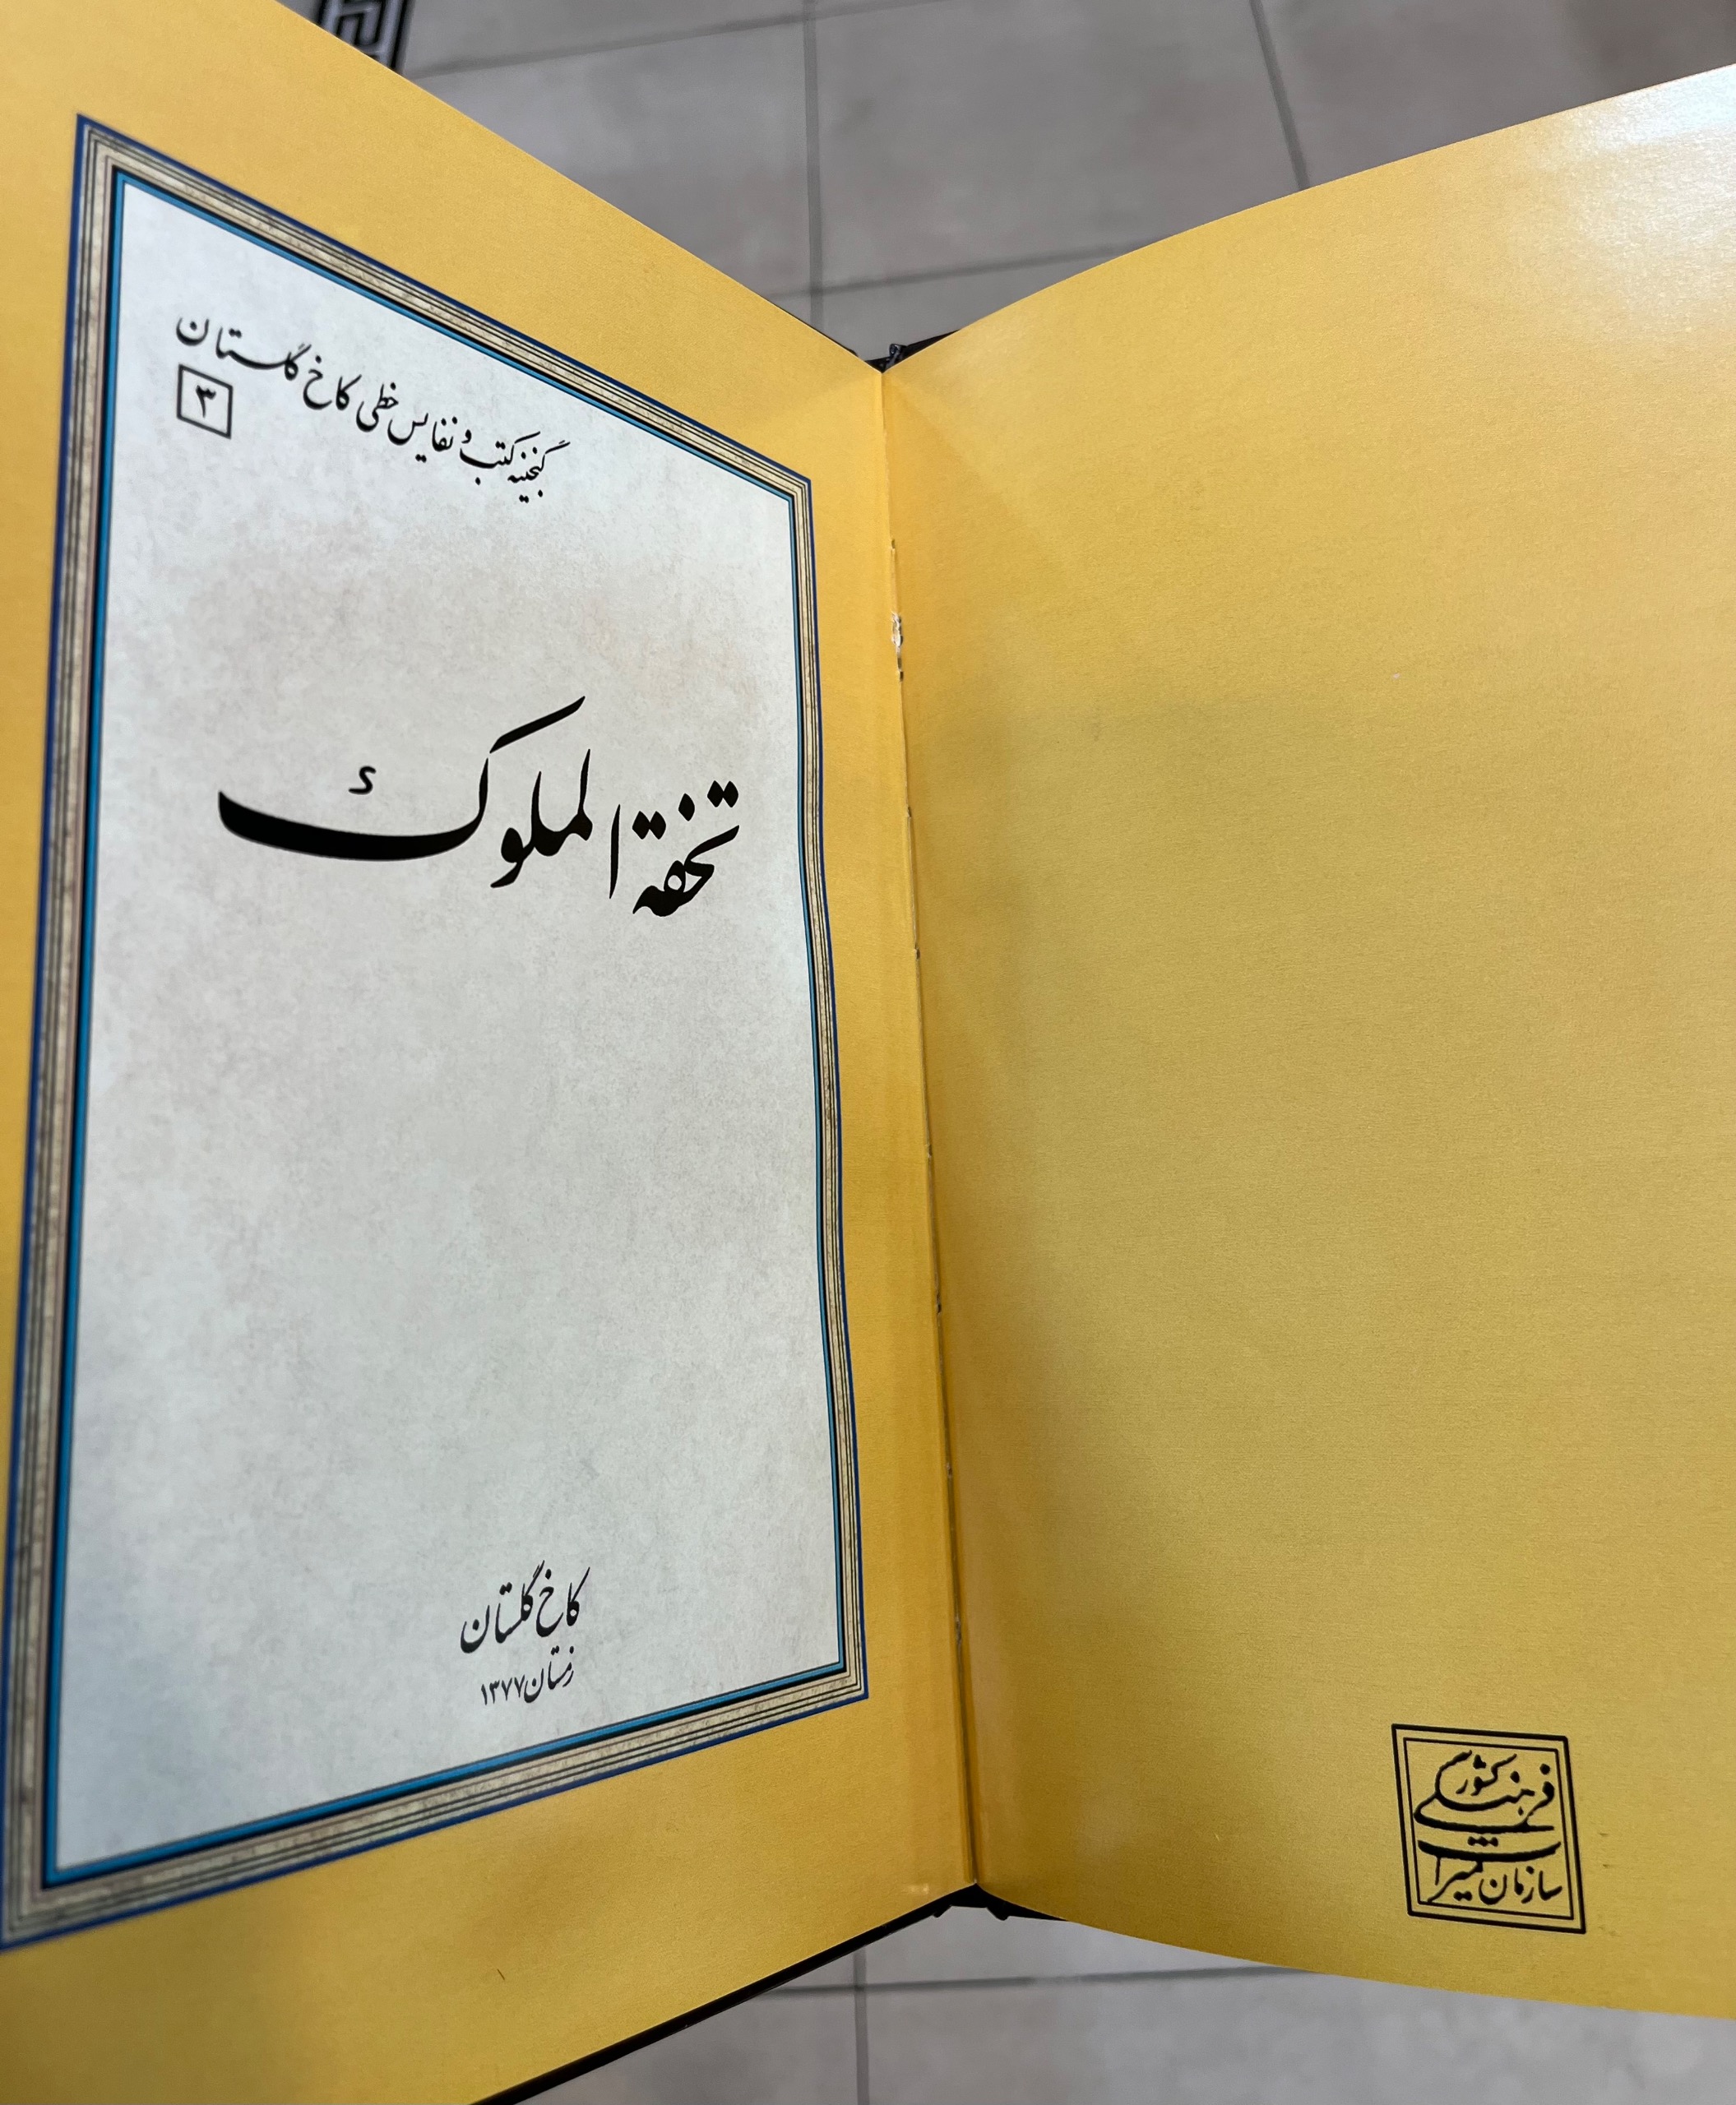 گنجینه کتب و نفایس خطی کاخ گلستان
۳
تحفة الملوک
کاخ گلستان
زمستان ۱۳۷۷
سازمان میراث
فرهنگی کشور